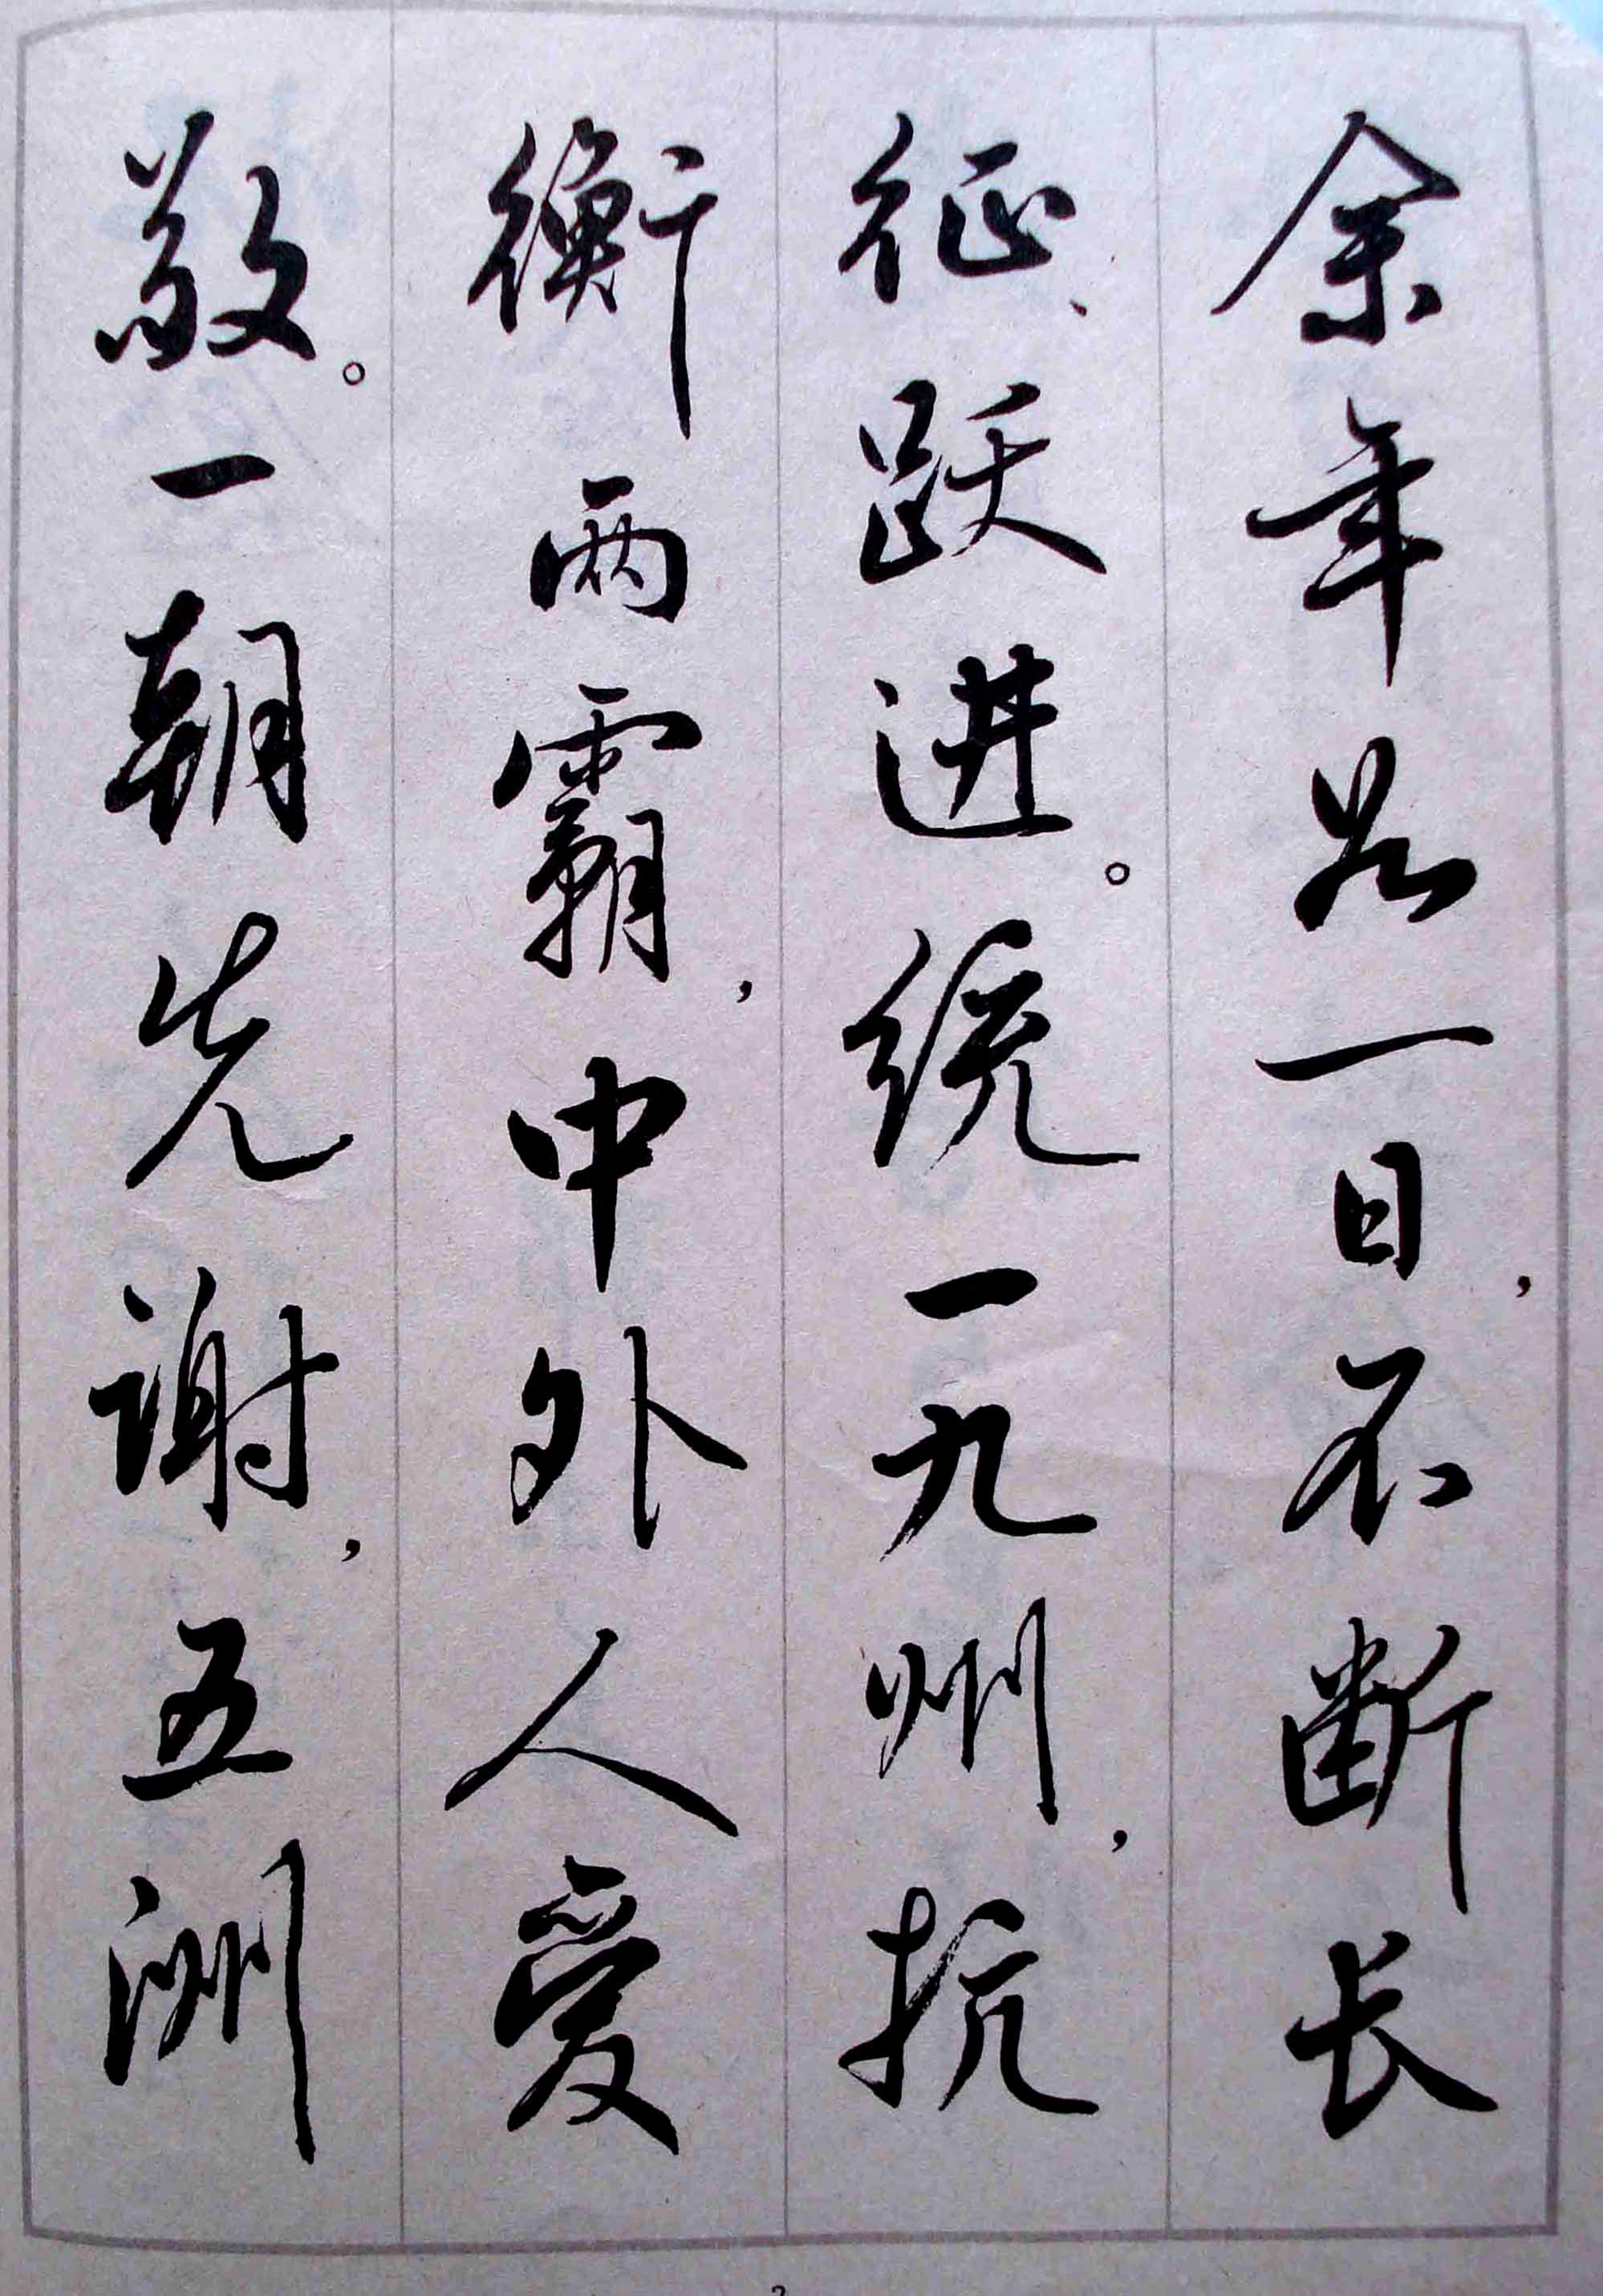 余年如一日，不断长
征、跃进。统一九州，抗
衡两霸，中外人爱
敬。一朝先谢，五洲